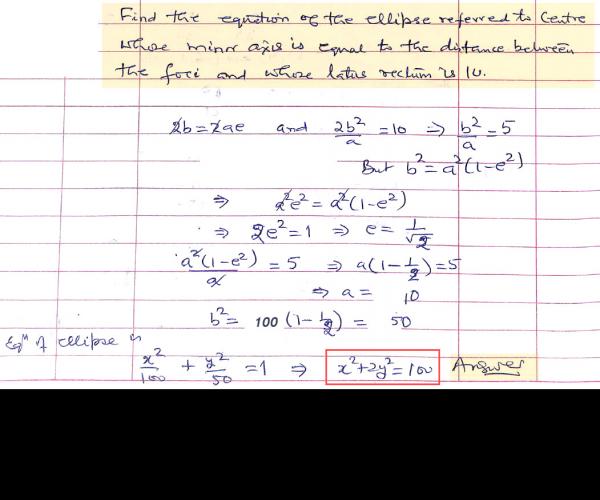 Find the equation of the ellipse referred to Centre
whose minor axis is equal to the distance between
the foci and whose latus rectum is 10.
2b = 2ae and 2b²/a = 10 ⇒ b²/a = 5
But b² = a²(1-e²)
⇒ a²e² = a²(1-e²)
⇒ 2e² = 1 ⇒ e = 1/√2
a²(1-e²)/a = 5 ⇒ a(1-1/2) = 5
⇒ a = 10
b² = 100 (1-1/2) = 50
Eqⁿ of ellipse is
x²/100 + y²/50 = 1 ⇒ x²+2y²=100 Answer